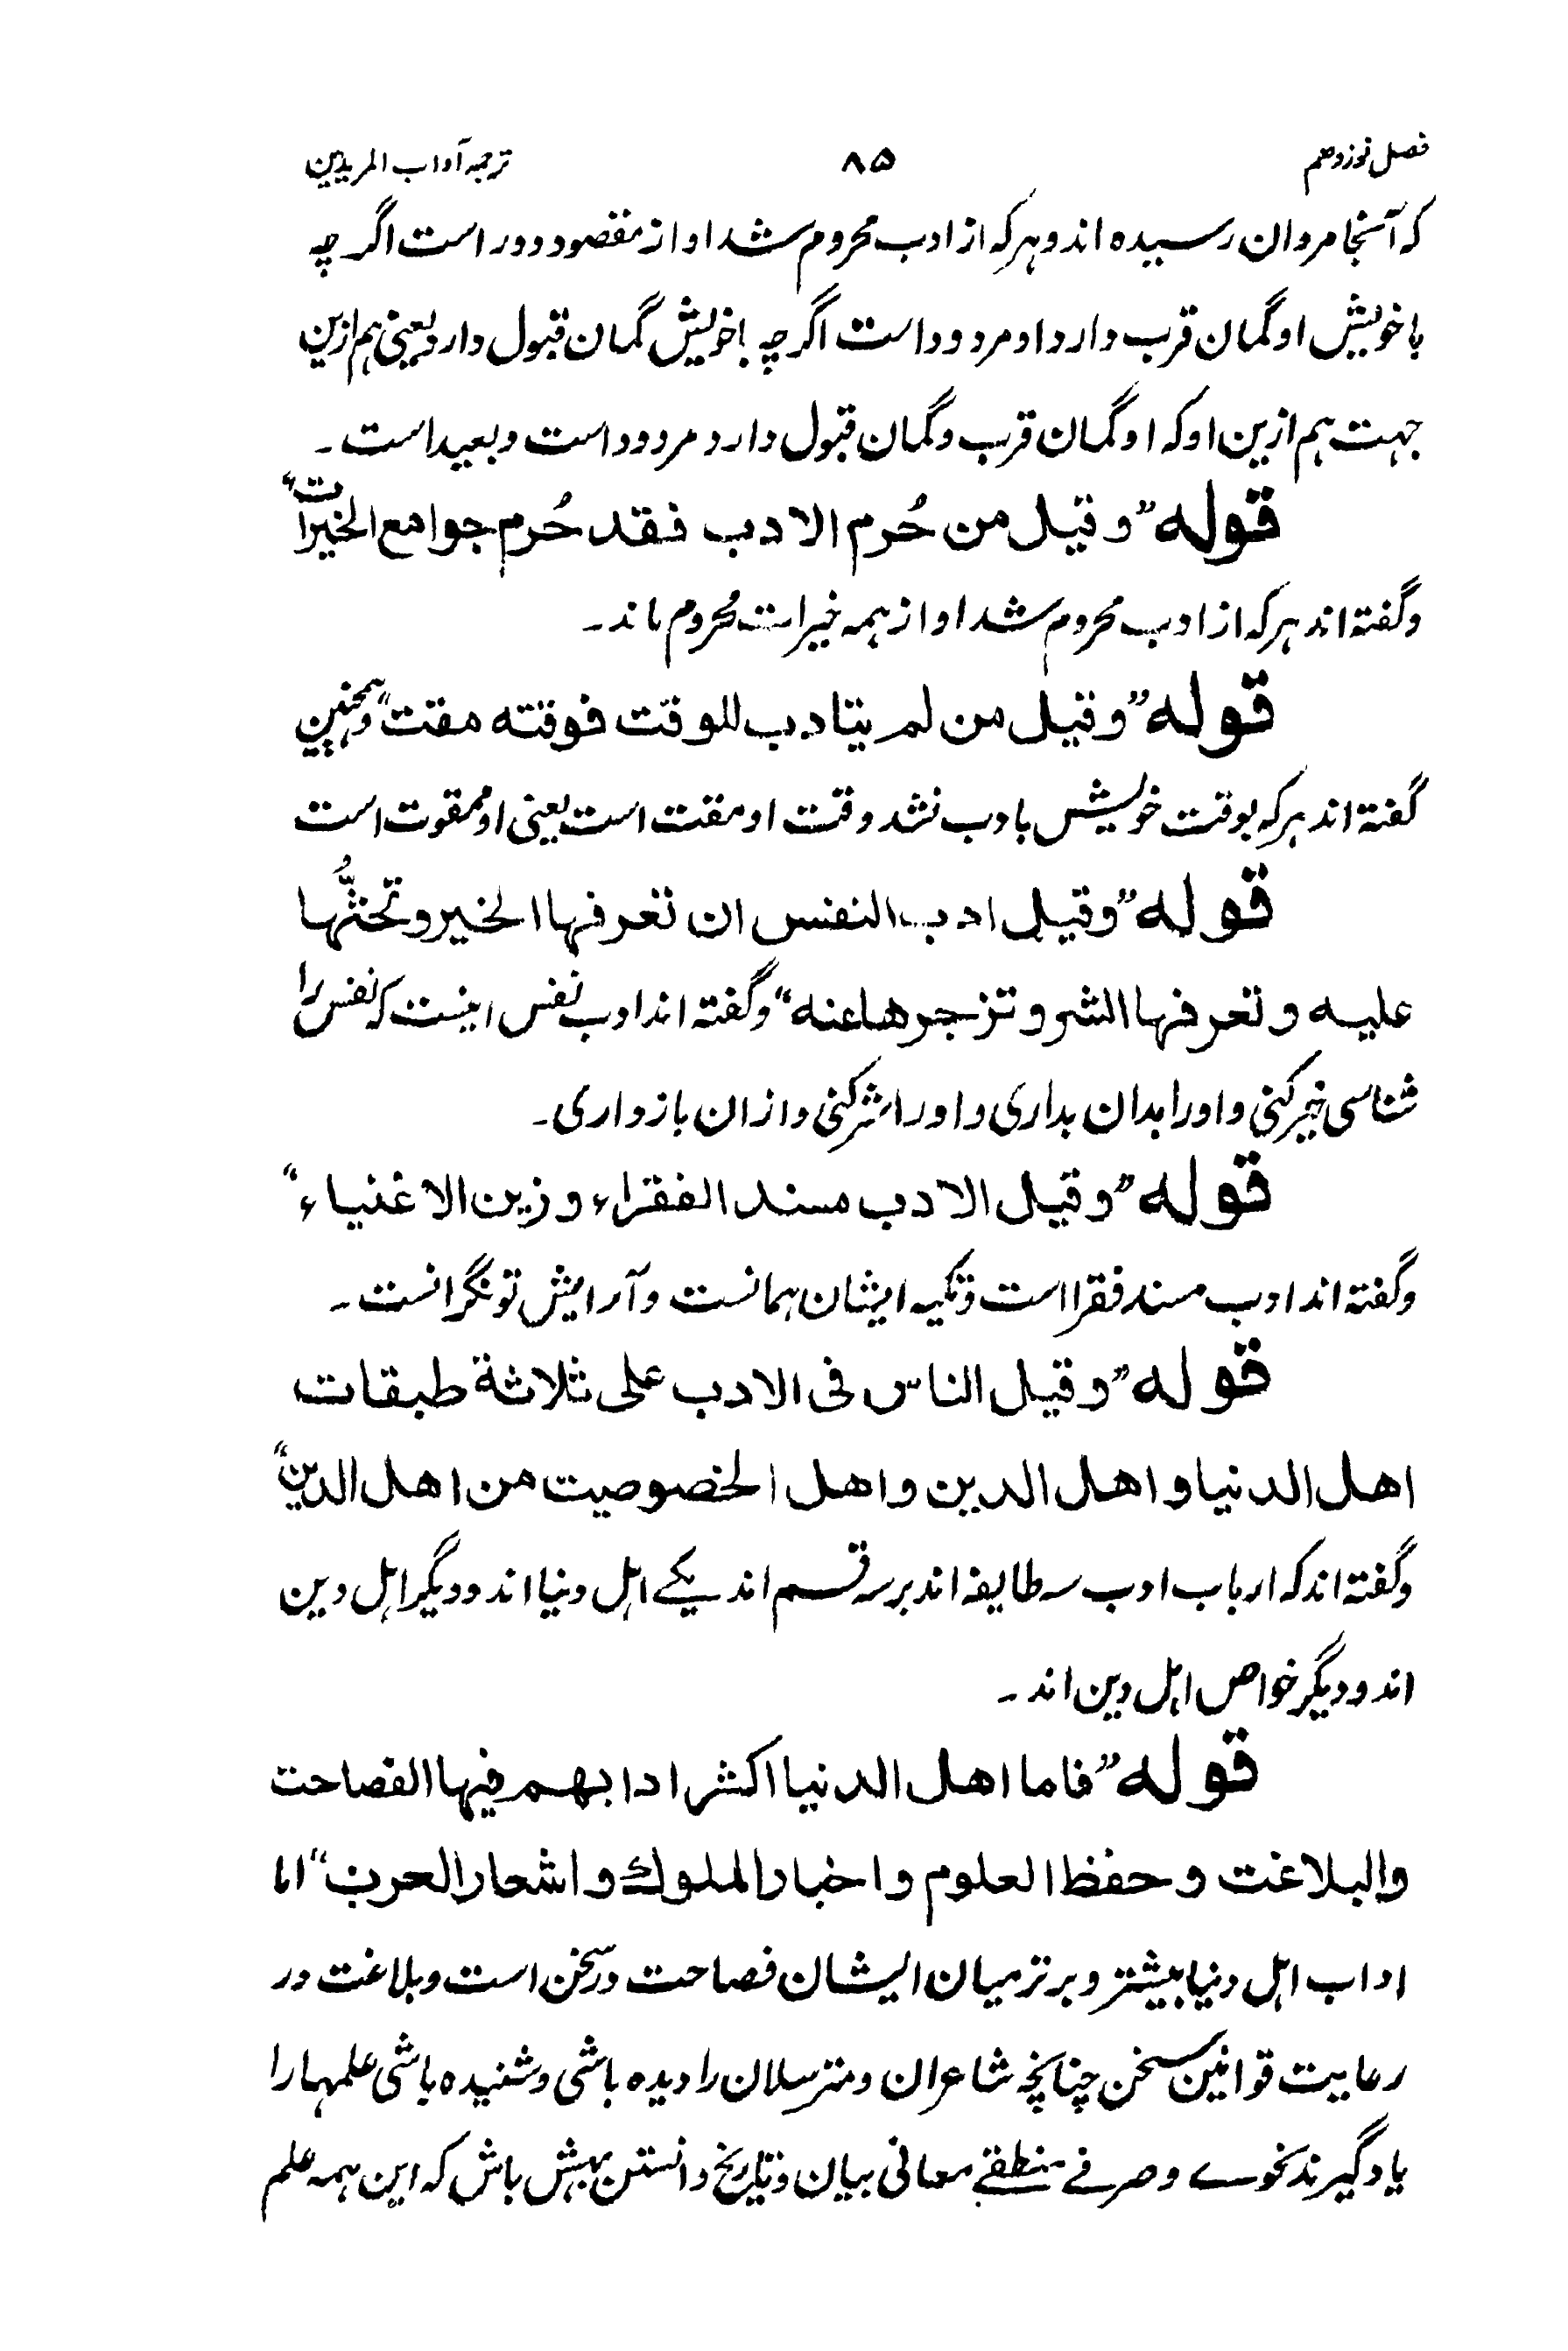 فصل نوزدهم ۸۵ ترجمه آداب المریدین
که آنجا مردان رسیده اند و هرکه از ادب محروم شد او از مقصود دور است اگر چه
با خویش او گمان قرب دارد او مردود است اگر چه باخویش گمان قبول دارد یعنی هم ازین
جهت هم ازین او که او گمان قرب و گمان قبول دارد مردود است و بعید است۔
قوله ”وقیل من حُرم الادب فقد حُرم جوامع الخیرات“
و گفته اند هرکه از ادب محروم شد او از همه خیرات محروم ماند۔
قوله ”وقیل من لم یتادب للوقت فوقته مقت“ و همچنین
گفته اند هرکه بوقت خویش بادب نشد وقت او مقت است یعنی او ممقوت است
قوله ”وقیل ادب النفس ان تعرفها الخیر وتحثُّها
علیه و تعرفها الشر و تزجرها عنه“ و گفته اند ادب نفس اینست که نفس را
شناسی خیر کنی و اورا بدان بداری و اورا شر کنی و ازان بازداری۔
قوله ”وقیل الادب مسند الفقراء و زین الاغنیاء“
و گفته اند ادب مسند فقرا است و تکیه ایشان همانست و آرایش تونگرانست۔
قوله ”وقیل الناس فی الادب علی ثلاثة طبقات
اهل الدنیا و اهل الدین و اهل الخصوصیت من اهل الدین“
و گفته اند که ارباب ادب سه طایفه اند برسه قسم اند یکے اهل دنیا اند و دیگر اهل دین
اند و دیگر خواص اهل دین اند۔
قوله ”فاما اهل الدنیا اکثر ادابهم فیها الفصاحت
والبلاغت و حفظ العلوم و اخبار الملوك و اشعار العرب“ اما
اداب اهل دنیا بیشتر و برتر میان ایشان فصاحت در سخن است و بلاغت در
رعایت قوانین سخن چنانچه شاعران و مترسلان را دیده باشی و شنیده باشی علمها را
یاد گیرند نحوے و صرفے منطقے معانی بیان و تاریخ دانستن بهش باش که این همه علم